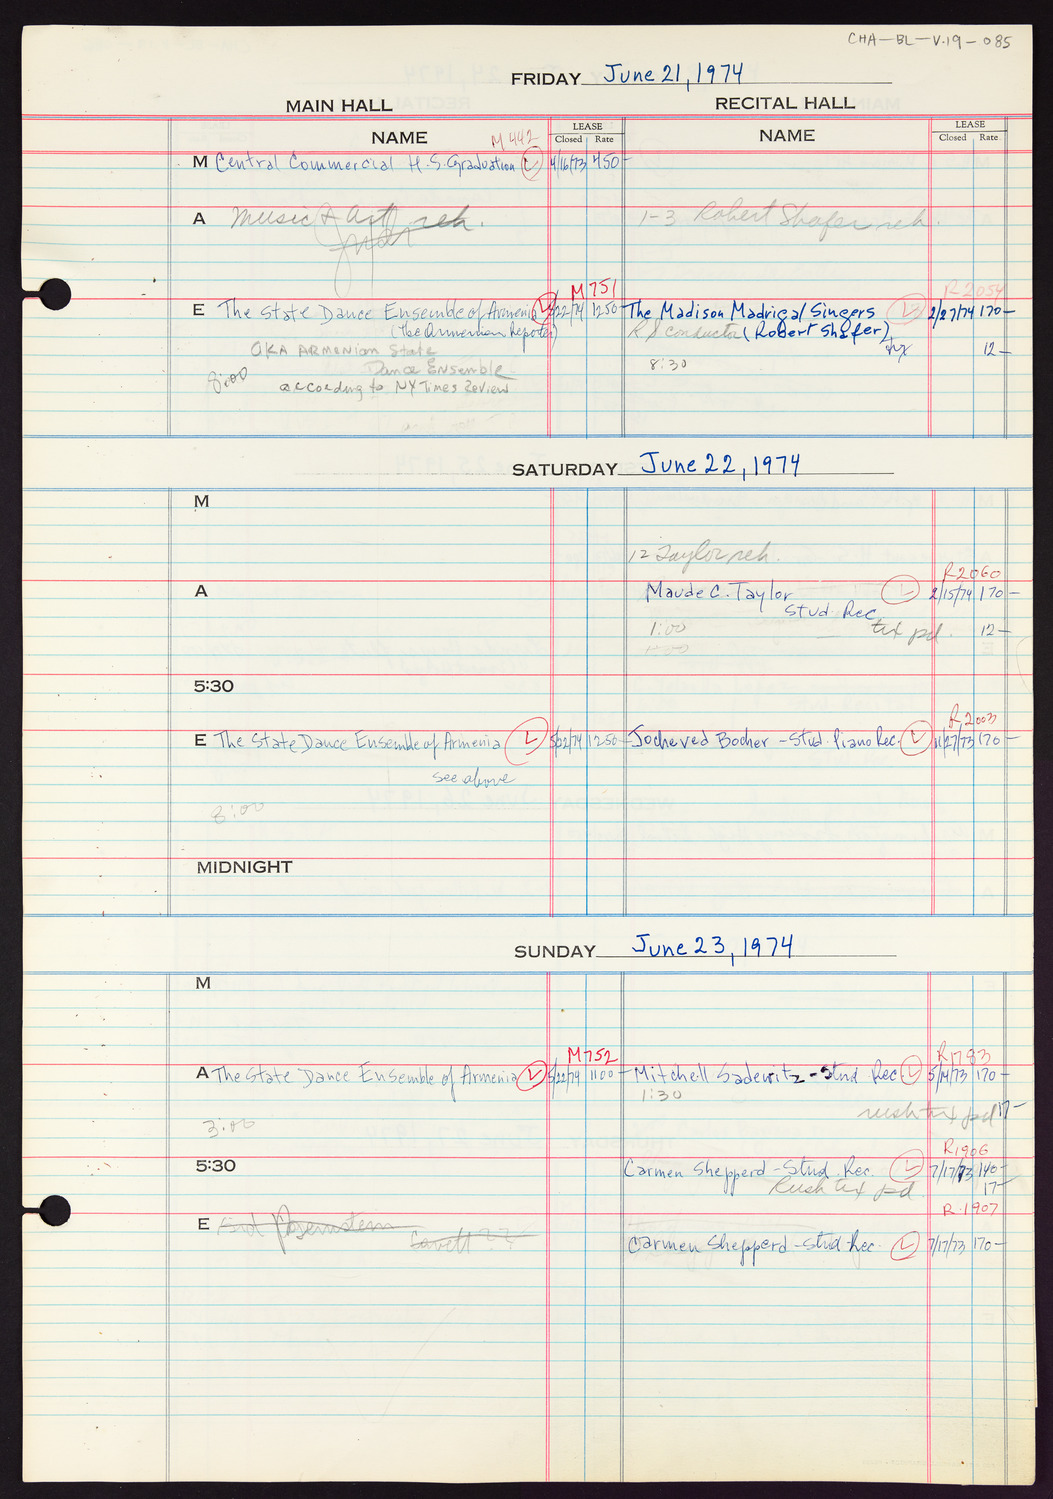 CHA-BL-V.19-085
FRIDAY June 21, 1974
MAIN HALL
RECITAL HALL
NAME
M 442
LEASE
Closed Rate
NAME
LEASE
Closed Rate
M Central Commercial H.S. Graduation L 4/16/73 450-
A Music & Art reh.
1-3 Robert Shafer reh.
M 751
R 2054
E The State Dance Ensemble of Armenia L 5/22/74 1250-
The Madison Madrigal Singers L 2/27/74 170-
(The Armenian Reporter)
R.S conductor (Robert Shafer)
tix 12-
AKA ARMENIAN State
Dance Ensemble
8:00
according to NY Times Review
8:30
SATURDAY June 22, 1974
M
12 Taylor reh.
R2060
A
Maude C. Taylor L 2/15/74 170-
Stud. Rec.
1:00
tix pd. 12-
1:00
5:30
R2003
E The State Dance Ensemble of Armenia L 5/22/74 1250-
Jocheved Bocher - Stud. Piano Rec. L 11/27/73 170-
see above
8:00
MIDNIGHT
SUNDAY June 23, 1974
M
M752
R1783
A The State Dance Ensemble of Armenia L 5/22/74 1100-
Mitchell Sadewitz - Stud Rec L 5/14/73 170-
1:30
rush tix pd 17-
3:00
R1906
5:30
Carmen Shepperd - Stud. Rec. L 7/17/73 140-
Rush tix pd. 17-
R.1907
E
Carmen Shepperd - Stud. Rec. L 7/17/73 170-